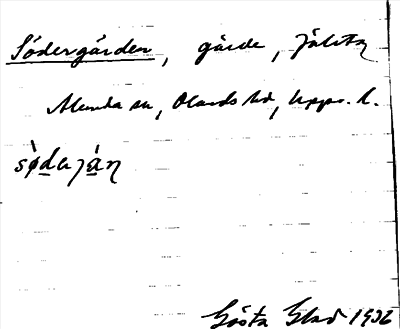 Södergärden, gärde, Jälsta
Alunda sn, Olands hd, Upps. l.
Gösta Glad 1932